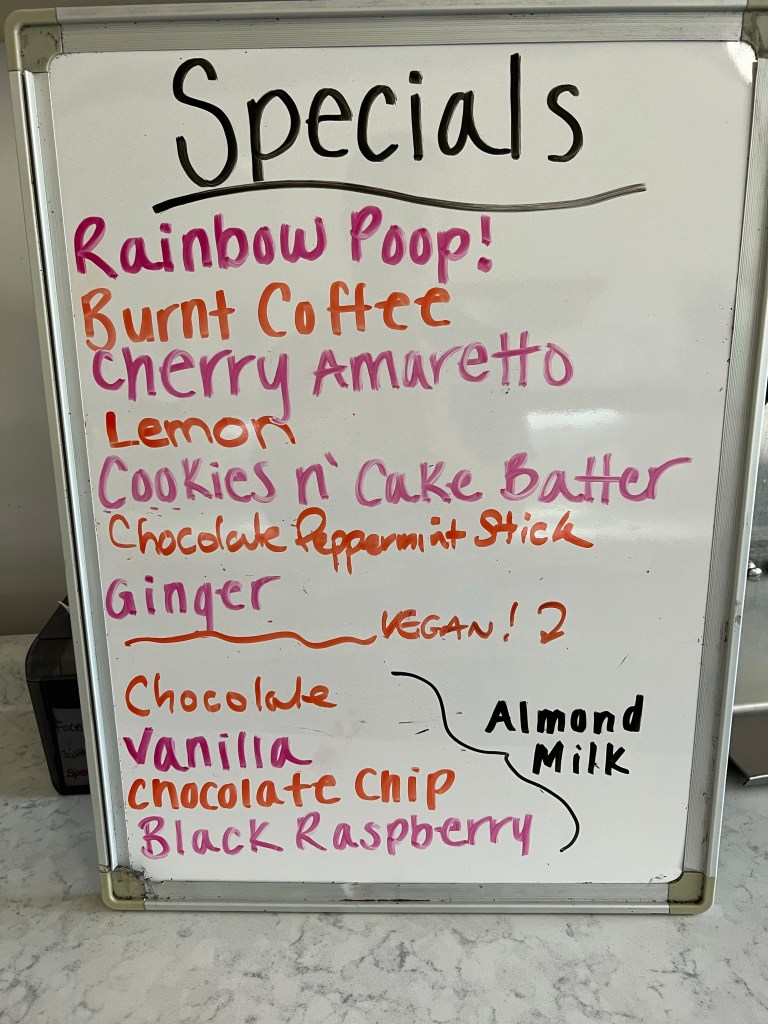 Specials
Rainbow Poop!
Burnt Coffee
Cherry Amaretto
Lemon
Cookies n' Cake Batter
Chocolate Peppermint Stick
Ginger
VEGAN!
Chocolate
Vanilla
Chocolate Chip
Black Raspberry
Almond
Milk
Face